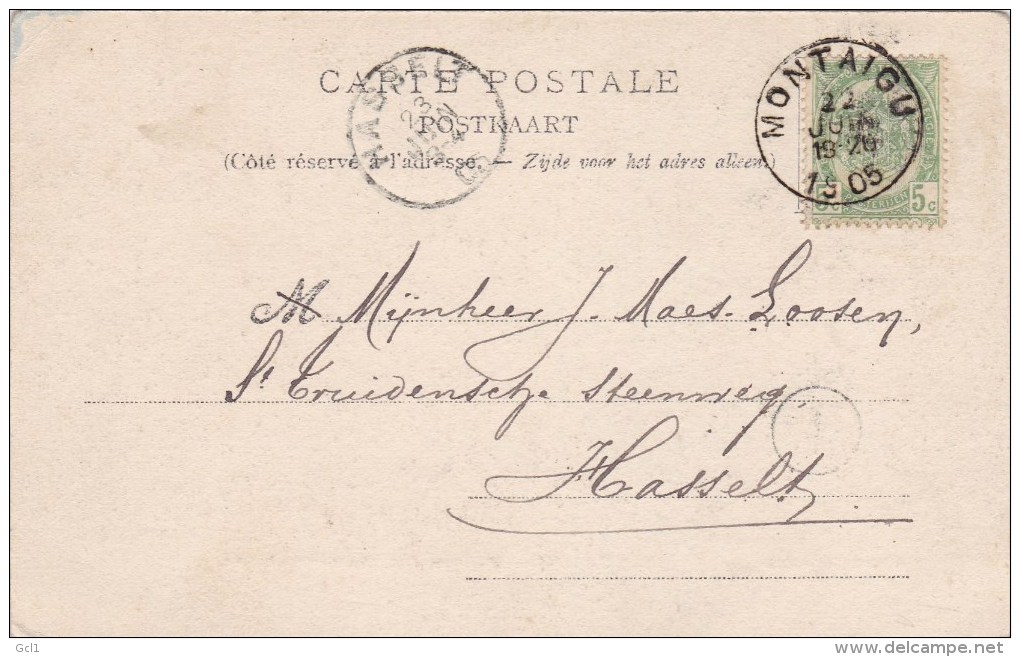 CARTE POSTALE
POSTKAART
(Côté réservé à l'adresse. — Zijde voor het adres alleen.)
HASSELT
23
JUIN
05
MONTAIGU
22
JUIN
18-20
1905
5c 5c
M Mijnheer J. Maes-Loosen,
St Truidensche steenweg,
Hasselt
Gcl1
www.delcampe.net